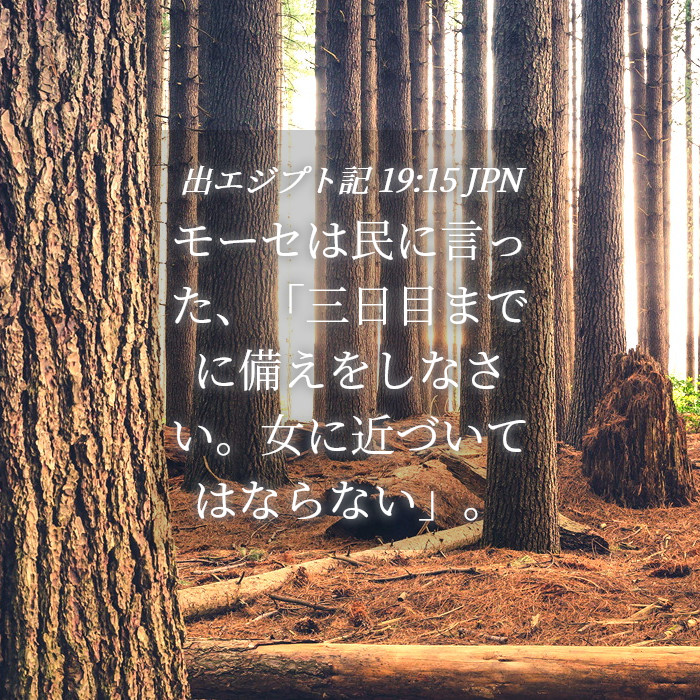 出エジプト記 19:15 JPN
モーセは民に言っ
た、「三日目まで
に備えをしなさ
い。女に近づいて
はならない」。